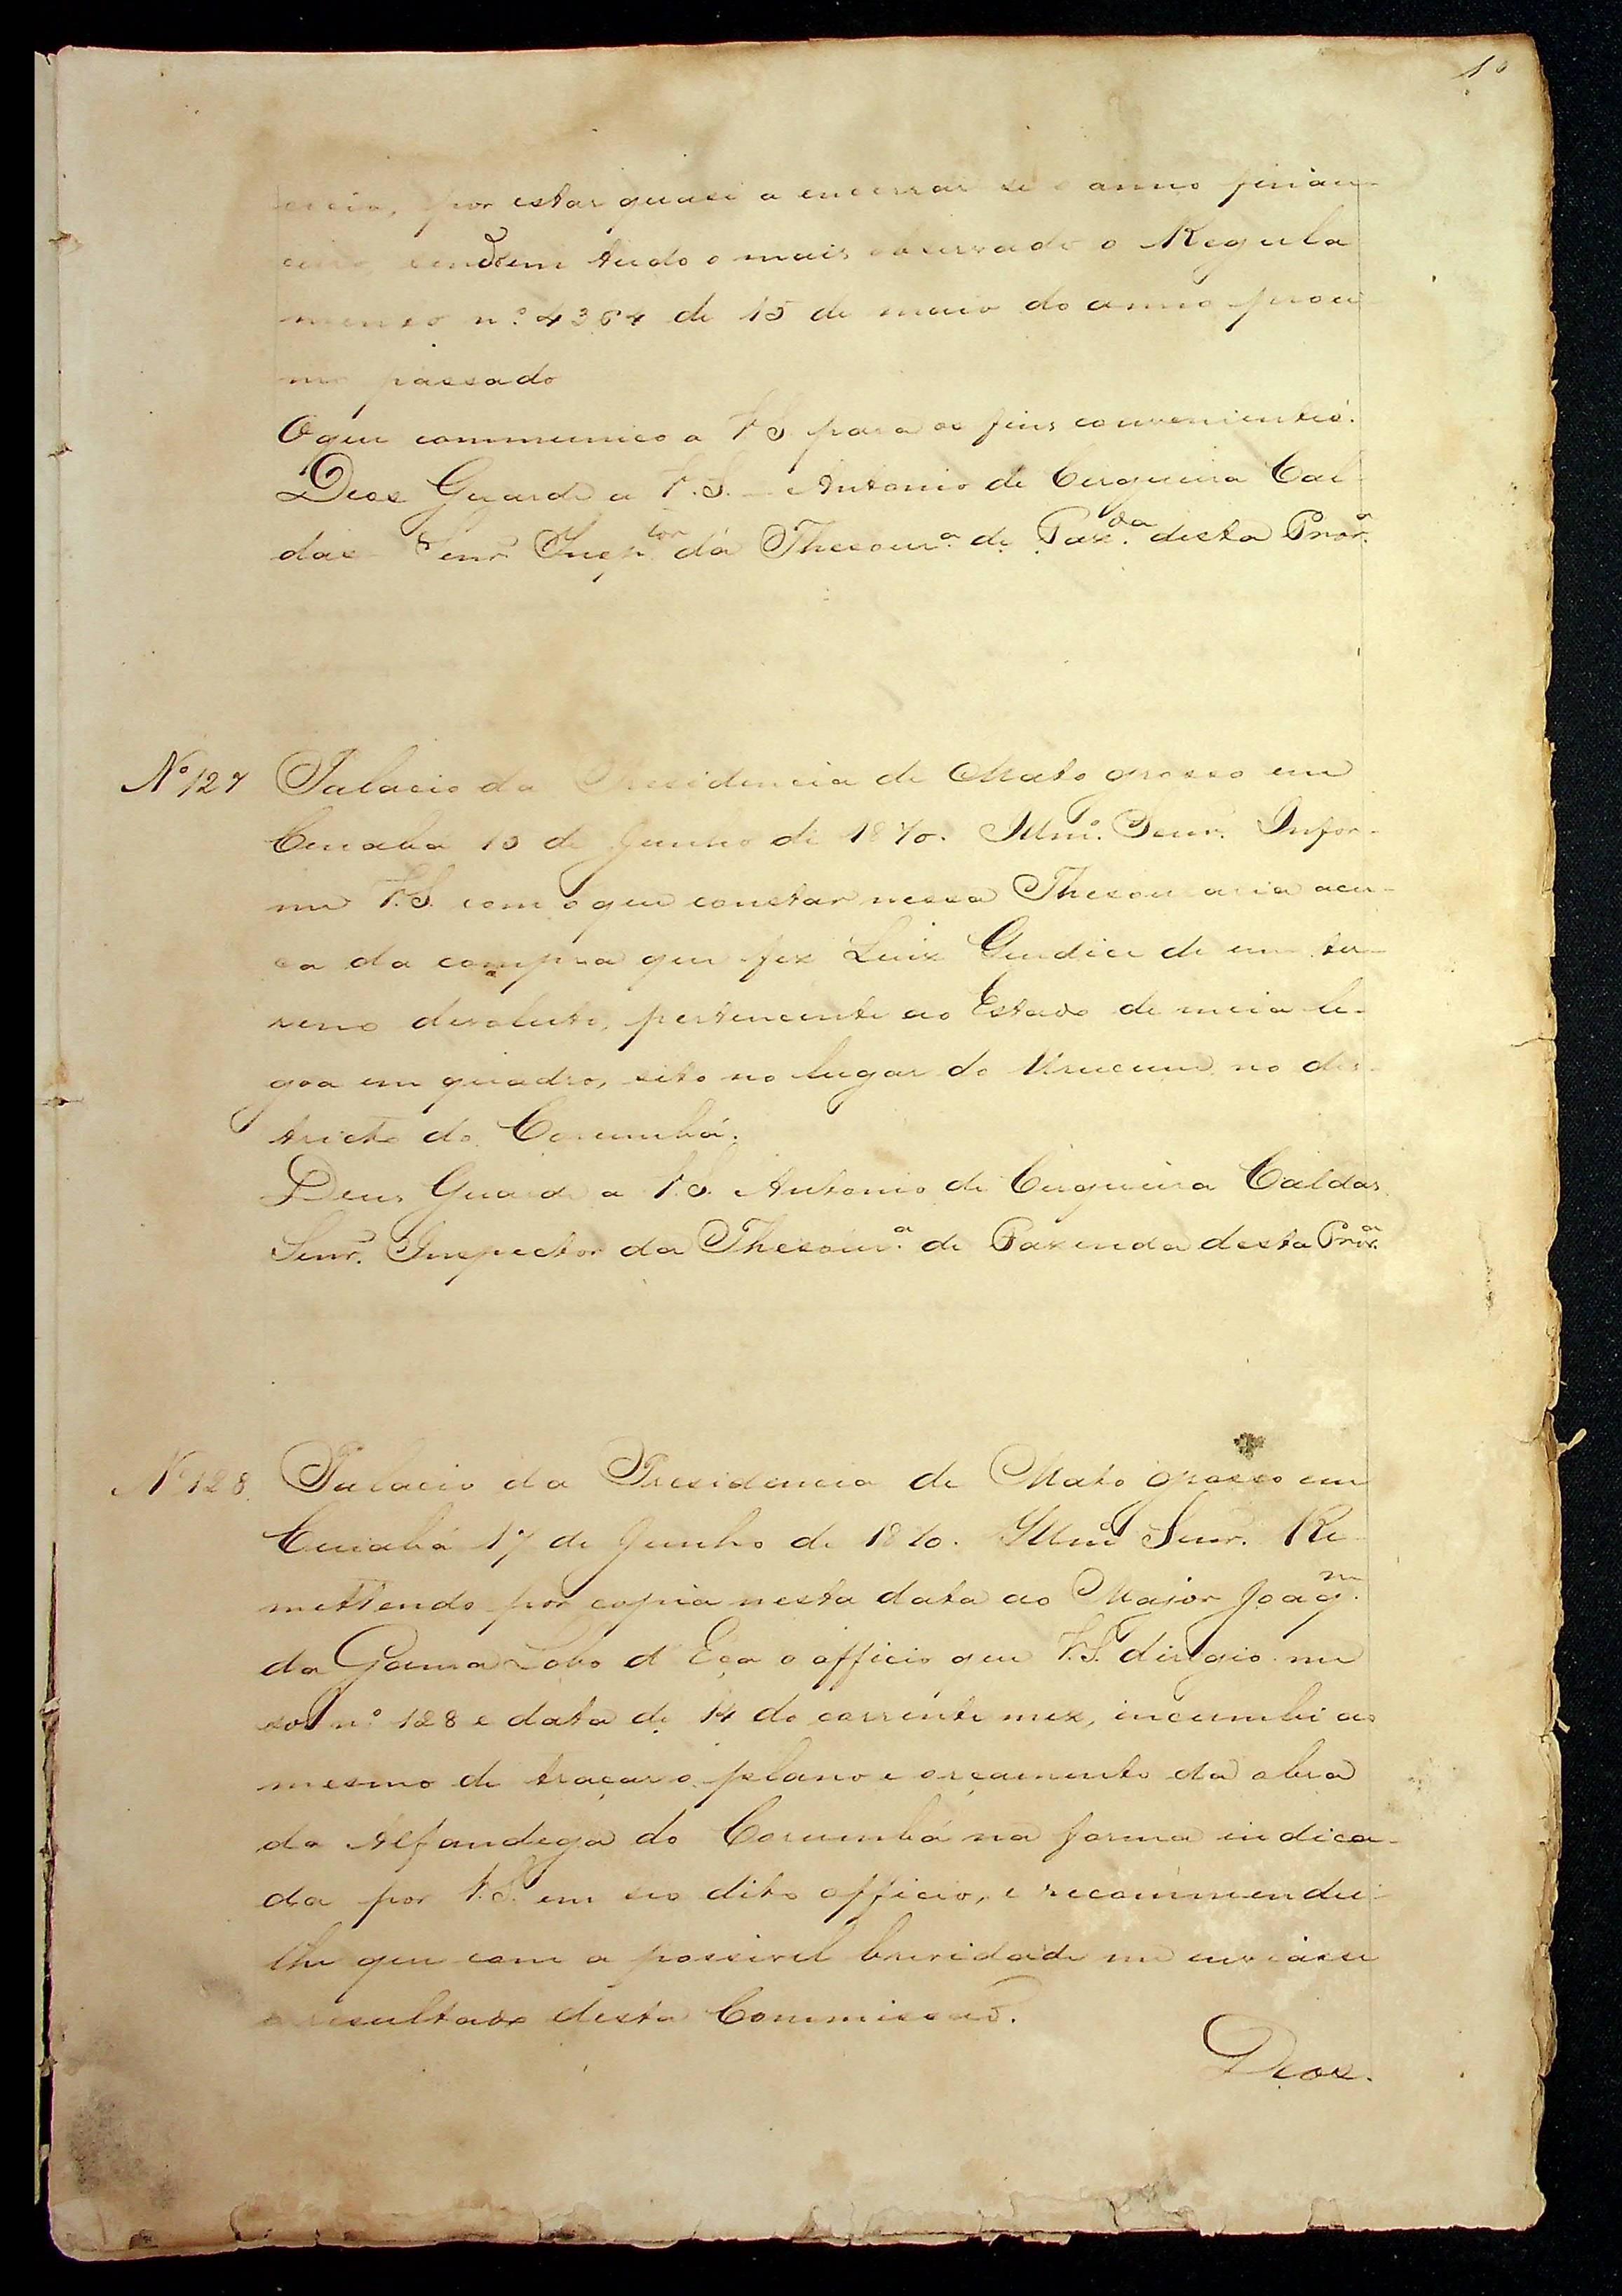 10
encia, por estar quasi a encerrar se o anno finan-
ceiro sendo em tudo o mais observado o Regula
mento nº 4364 de 15 de maio do anno proxi
mo passado
O que communico a V.S. para os fins convenientes.
Deos Guarde a V.S. — Antonio de Cerqueira Cal
das — Senr. Insp.tor da Thesour.a de Faz.da desta Prov.a
Nº 127 Palacio da Presidencia de Mato grosso em
Cuiabá 15 de Junho de 1870. Illmº. Senr. Infor-
me V.S. com o que constar nessa Thesouraria acer-
ca da compra que fez Luiz Gendice de um ter-
reno devoluto, pertencente ao Estado de meia le-
goa em quadro, sito no lugar do Urucum no dis-
tricto de Corumbá.
Deus Guarde a V.S. Antonio de Cerqueira Caldas.
Senr. Inspector da Thesour.a de Fazenda desta Prov.a
Nº 128. Palacio da Presidencia de Mato grosso em
Cuiabá 17 de Junho de 1870. Illmº Senr. Re-
mettendo por copia nesta data ao Major Joaq.m
da Gama Lobo d'Eça o officio que V.S. dirigio-me
sob nº 128 e data de 14 do corrente mez, incumbi ao
mesmo de traçar o plano e orçamento da obra
da Alfandega de Corumbá na forma indica-
da por V.S. em seo dito officio, e recommendei-
lhe que com a possivel brevidade me enviasse
o resultado desta Commissaõ.
Deos.